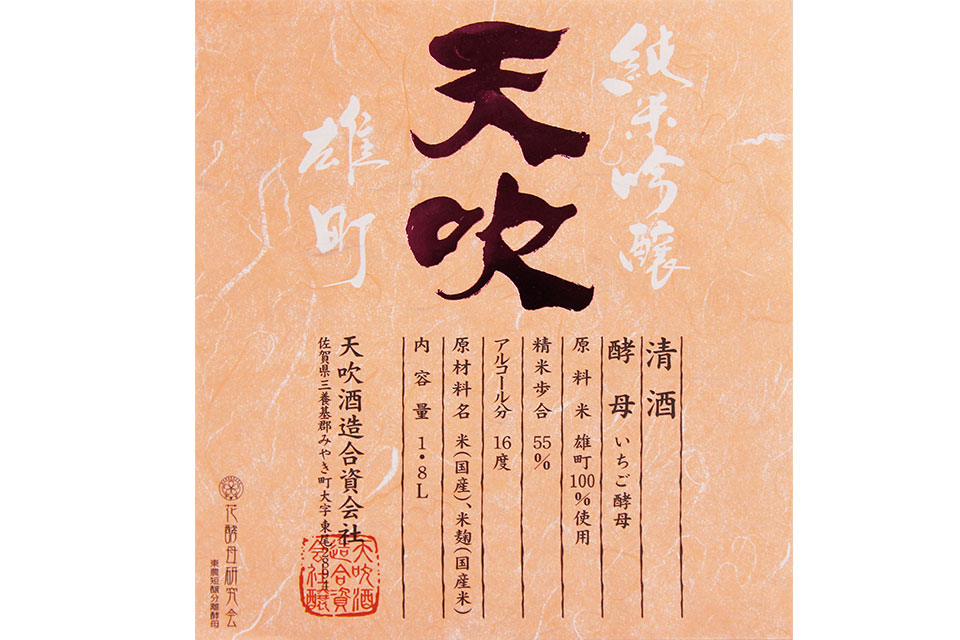 純米吟醸
天吹
雄町
清酒
酵母 いちご酵母
原料米 雄町100%使用
精米歩合 55%
アルコール分 16度
原材料名 米(国産)、米麹(国産米)
内容量 1・8L
天吹酒造合資会社
佐賀県三養基郡みやき町大字東尾2894
天吹酒
造合資
会社醸
花酵母研究会
東農短醸分離酵母